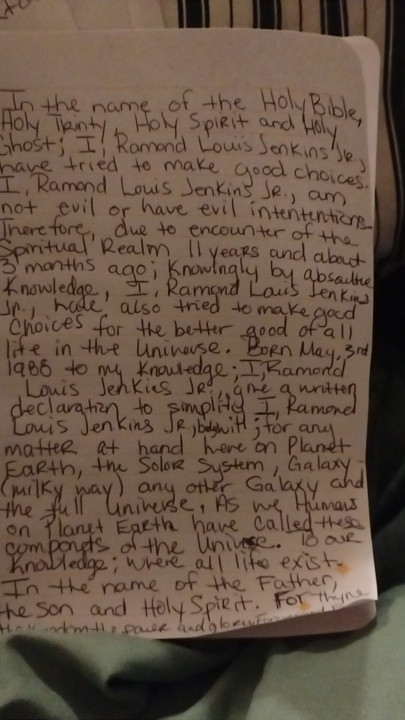 In the name of the Holy Bible,
Holy Trinty, Holy Spirit and Holy
Ghost; I, Ramond Louis Jenkins Jr.,
have tried to make good choices.
I, Ramond Louis Jenkins Jr., am
not evil or have evil intententions.
Therefore, due to encounter of the
Spiritual Realm 11 years and about
3 months ago; Knowingly by absolute
Knowledge, I, Ramond Louis Jenkins
Jr., have also tried to make good
Choices for the better good of all
life in the Universe. Born May, 3rd
1988 to my Knowledge; I, Ramond
Louis Jenkies Jr., give a written
declaration to simplify I, Ramond
Louis Jenkins Jr., ; for any
matter at hand here on Planet
Earth, the Solor System, Galaxy
(milky way) any other Galaxy and
the full Universe. As we Humans
on Planet Earth have called these
componts of the Universe. To our
Knowledge; where all life exist.
In the name of the Father,
the Son and Holy Spirit. For thyne
the kingdom the power and glory